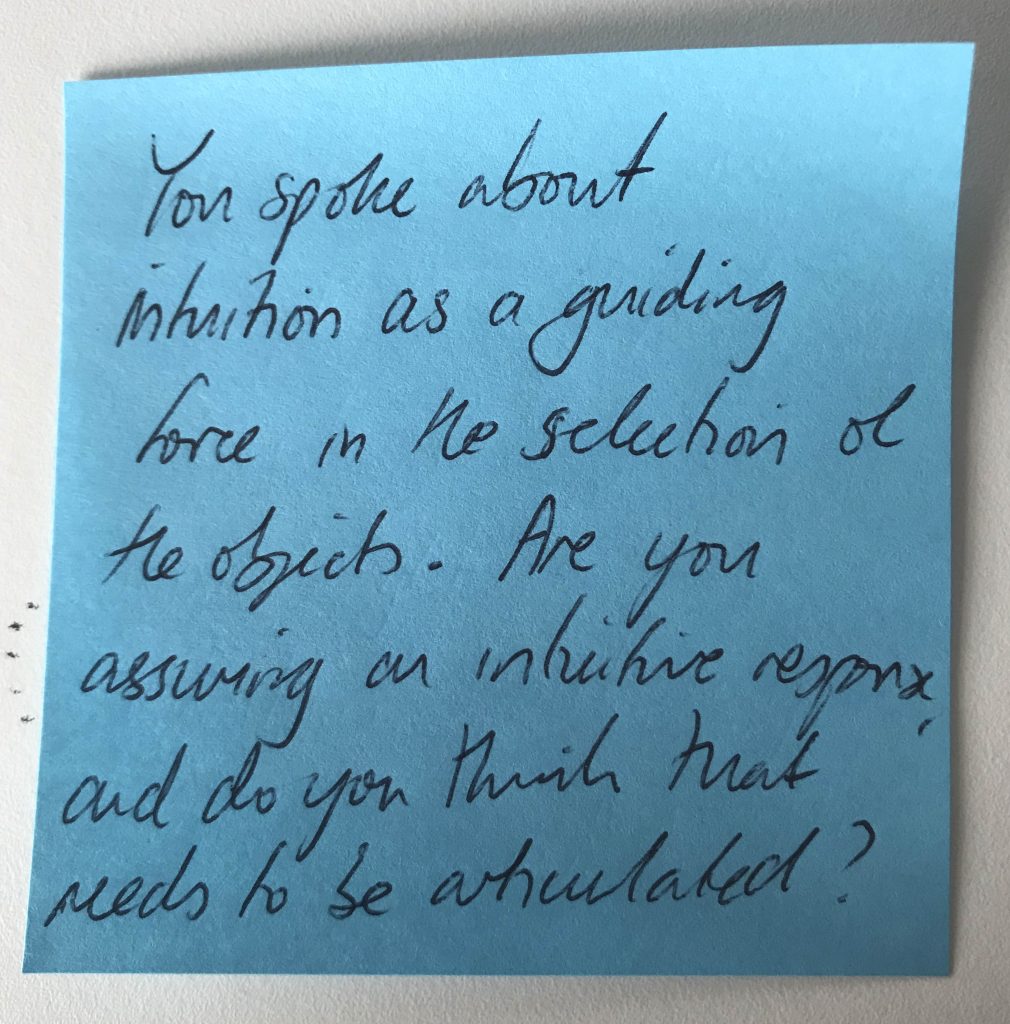 You spoke about
intuition as a guiding
force in the selection of
the objects. Are you
assuming an intuitive response,
and do you think that
needs to be articulated?